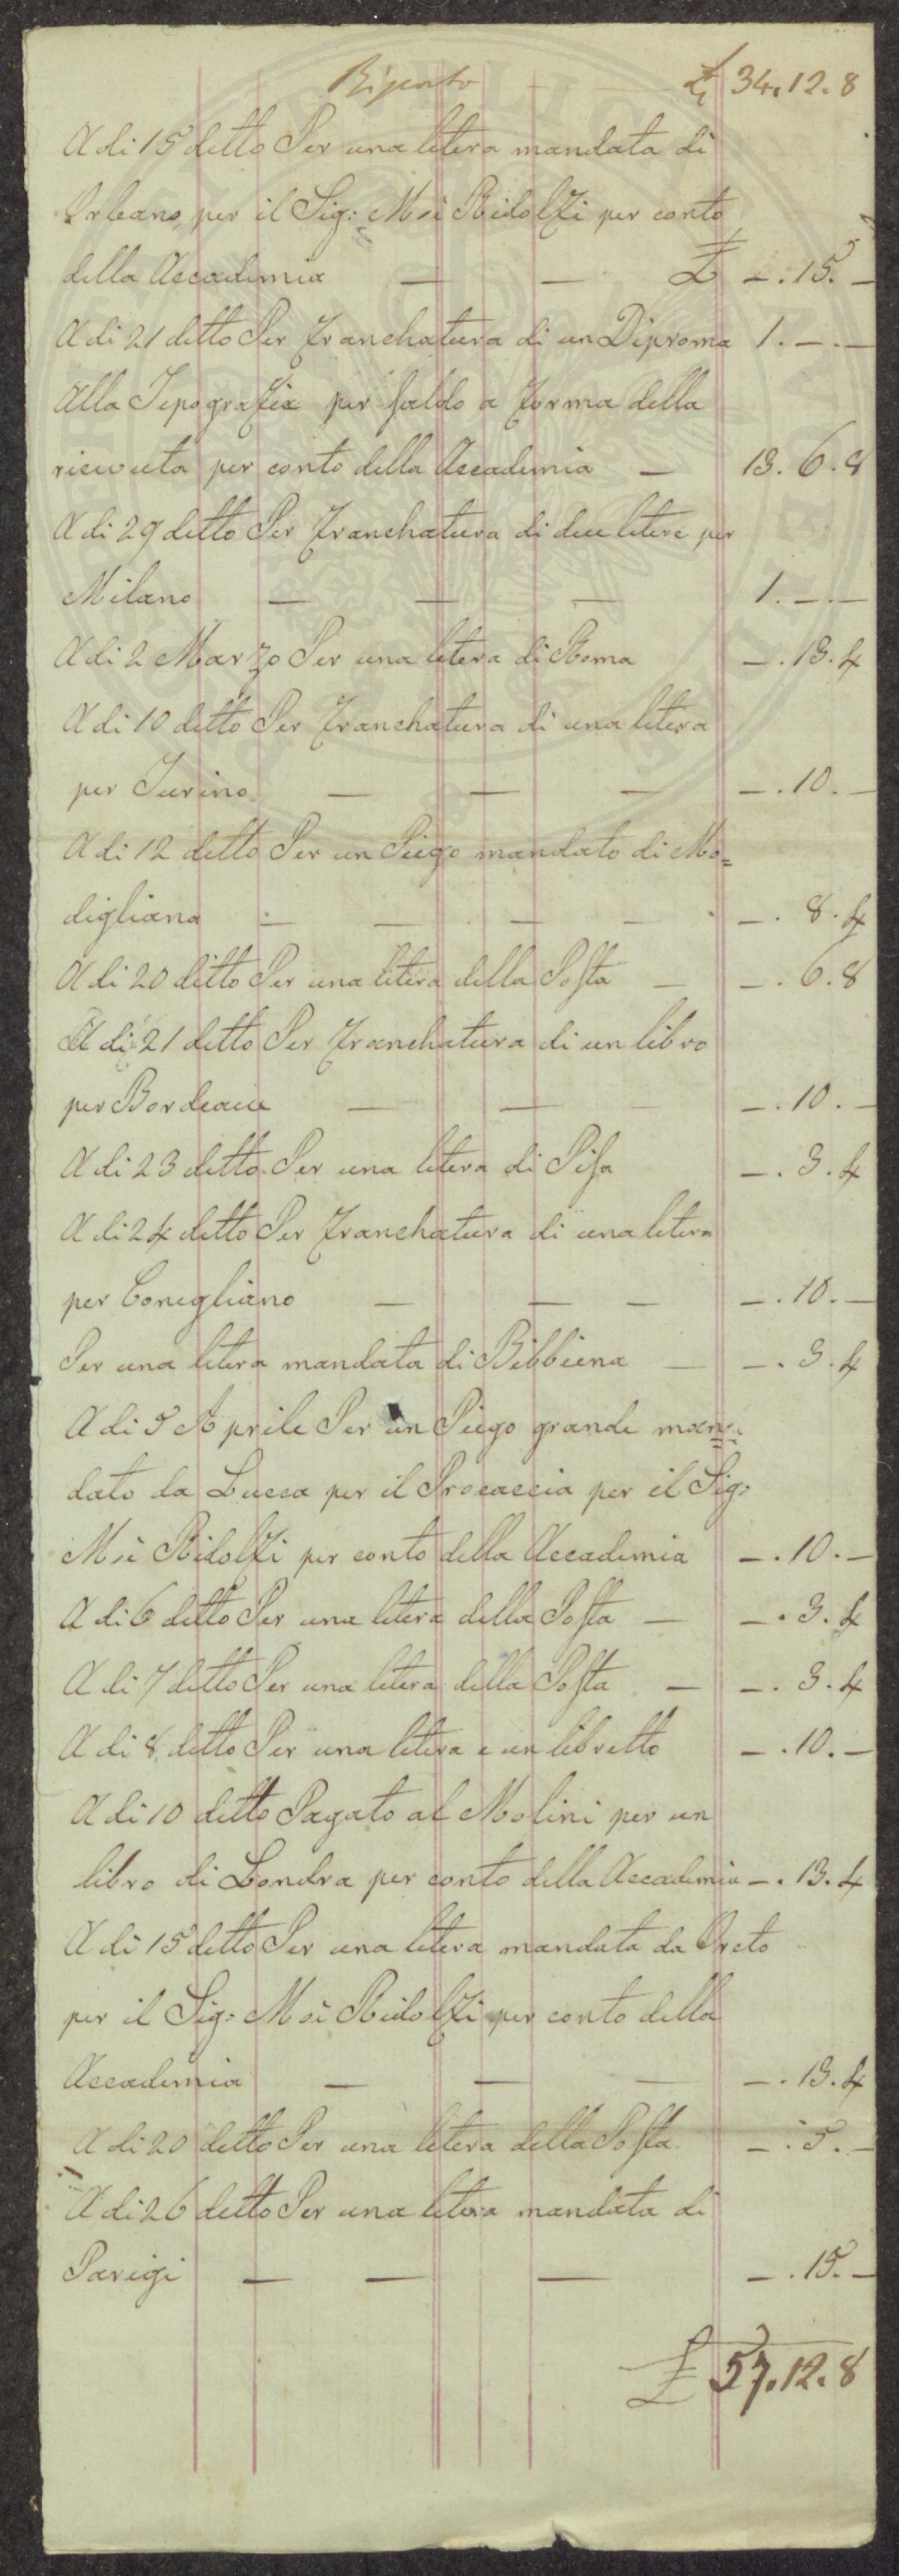 Riporto £ 34.12.8
A di 15 ditto Per una litera mandata di
Orleano per il Sig: Msè Ridolfi per conto
della Accademia — — £ —.15.—
A di 21 ditto Per franchatura di un Diproma 1.—.—
Alla Tipografia per saldo a forma della
ricevuta per conto della Accademia — 13.6.8
A di 29 ditto Per franchatura di due litere per
Milano — — — 1.—.—
A di 2 Marzo Per una litera di Roma —.13.4
A di 10 ditto Per franchatura di una litera
per Turino — — — —.10.—
A di 12 ditto Per un Piego mandato di Mo=
digliana — — — — —.8.4
A di 20 ditto Per una litera della Posta — —.6.8
A di 21 ditto Per franchatura di un libro
per Bordeaue — — —.10.—
A di 23 ditto Per una litera di Pisa —.3.4
A di 24 ditto Per franchatura di una litera
per Conegliano — — — —.10.—
Per una litera mandata di Bibbiena — —.3.4
A di 5 Aprile Per un Piego grande man=
dato da Lucca per il Procaccia per il Sig:
Msè Ridolfi per conto della Accademia —.10.—
A di 6 ditto Per una litera della Posta — —.3.4
A di 7 ditto Per una litera della Posta — —.3.4
A di 8 ditto Per una litera e un libretto —.10.—
A di 10 ditto Pagato al Molini per un
libro di Londra per conto della Accademia —.13.4
A di 15 ditto Per una litera mandata da
per il Sig: Msè Ridolfi per conto della
Accademia — — — —.13.4
A di 20 ditto Per una litera della Posta —.5.—
A di 26 ditto Per una litera mandata di
Parigi — — — —.15.—
£ 57.12.8